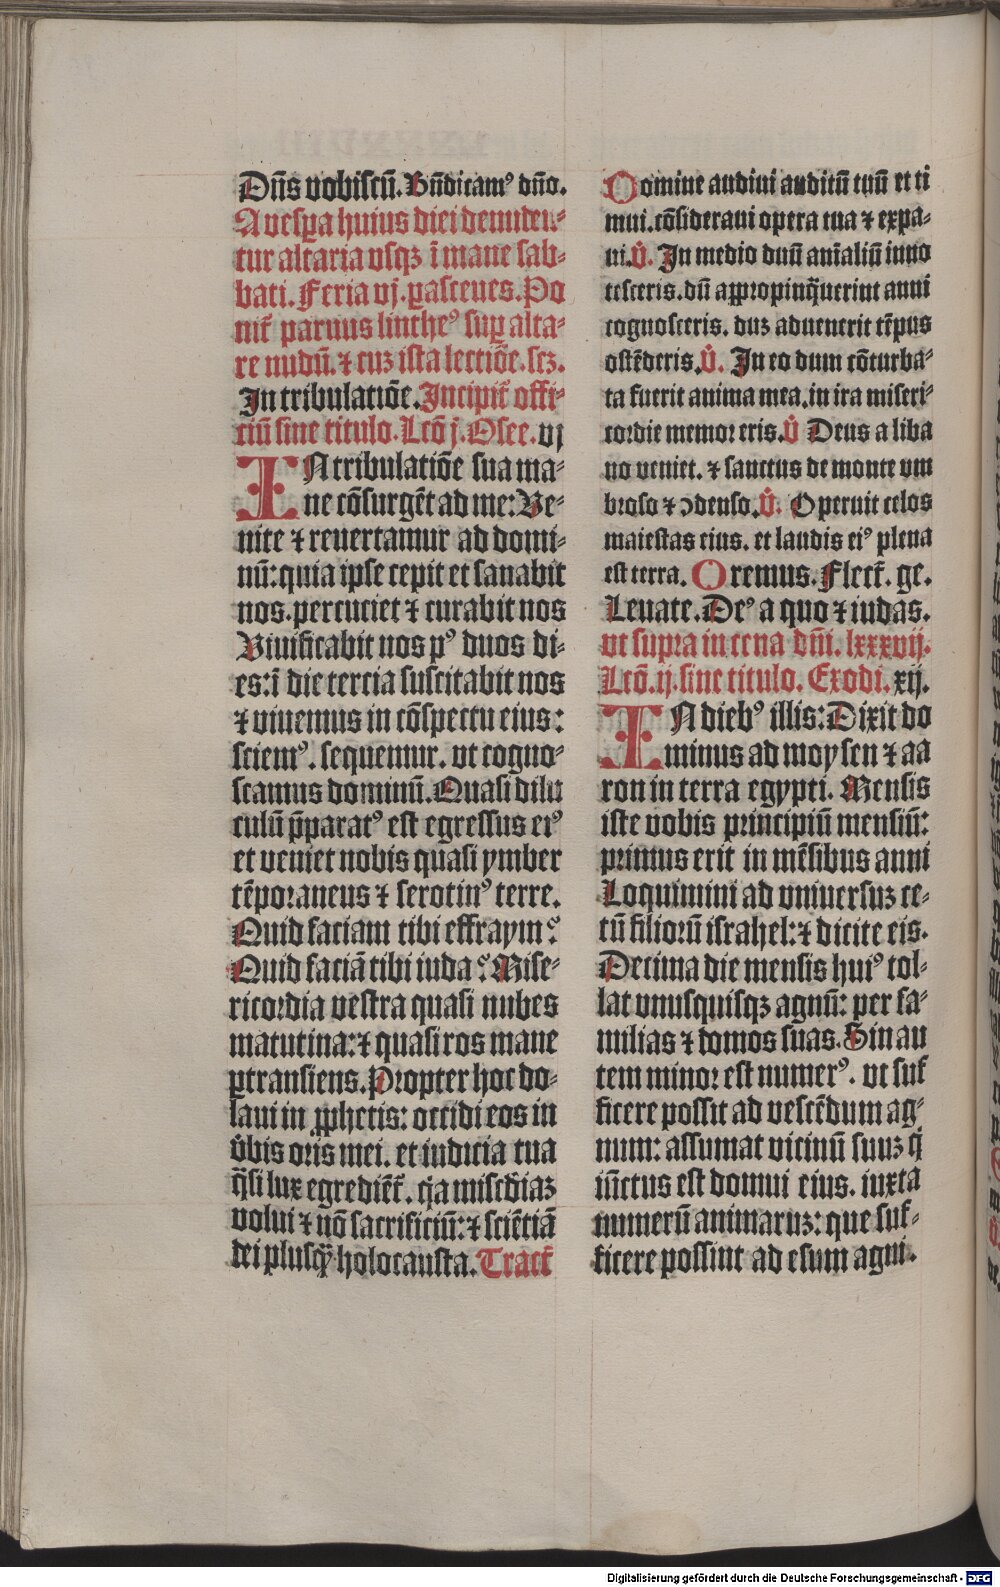 Dñs vobiscū. Bñdicamꝰ dño.
A vesꝑa huius diei denuden-
tur altaria vsqꝫ ī mane sab-
bati. Feria vj. ꝑasceues. Po
nit̄ paruus lintheꝰ suꝑ alta-
re nudū. ⁊ cuz ista lectiōe. scꝫ.
In tribulatiōe. Incipit̄ offi-
ciū sine titulo. Lcō j. Osee. vj
IN tribulatiōe sua ma-
ne cōsurgēt ad me: Ve-
nite ⁊ reuertamur ad domi-
nū: quia ipse cepit et sanabit
nos. percuciet ⁊ curabit nos
Viuificabit nos pꝰ duos di-
es: ī die tercia suscitabit nos
⁊ viuemus in cōspectu eius:
sciemꝰ. sequemur. vt cogno-
scamus dominū. Quasi dilu
culū p̄paratꝰ est egressus eiꝰ
et veniet nobis quasi ymber
tēporaneus ⁊ serotinꝰ terre.
Quid faciam tibi effraym?
Quid faciā tibi iuda? Mise-
ricordia vestra quasi nubes
matutina: ⁊ quasi ros mane
ꝑtransiens. Propter hoc do-
laui in ꝓphetis: occidi eos in
v̄bis oris mei. et iudicia tua
q̄si lux egrediēt̄. q̇a misc̄diaꝫ
volui ⁊ nō sacrificiū: ⁊ sciētiā
dei plusq̄ holocausta. Tract̄
Domine audiui auditū tuū et ti
mui. cōsideraui opera tua ⁊ expa-
ui. V̇. In medio duū aīaliū inno
tesceris. dū appropinq̄uerint anni
cognosceris. duꝫ aduenerit tēpus
ostēderis. V̇. In eo dum cōturba-
ta fuerit anima mea. in ira miseri-
cordie memor eris. V̇ Deus a liba
no veniet. ⁊ sanctus de monte vm
broso ⁊ ↄdenso. V̇. Operuit celos
maiestas eius. et laudis eiꝰ plena
est terra. Oremus. Flect̄. ge.
Leuate. Deꝰ a quo ⁊ iudas.
vt supra in cena dñi. lxxxvij.
Lcō. ij. sine titulo. Exodi. xij.
IN diebꝰ illis: Dixit do
minus ad moysen ⁊ aa
ron in terra egypti. Mensis
iste vobis principiū mensiū:
primus erit in mēsibus anni
Loquimini ad vniuersuꝫ ce-
tū filiorū israhel: ⁊ dicite eis.
Decima die mensis huiꝰ tol-
lat vnusquisqꝫ agnū: per fa-
milias ⁊ domos suas. Sin au
tem minor est numerꝰ. vt suf
ficere possit ad vescēdum ag-
num: assumat vicinū suuꝫ q̇
iūctus est domui eius. iuxta
numerū animaruꝫ: que suf-
ficere possint ad esum agni.
Digitalisierung gefördert durch die Deutsche Forschungsgemeinschaft - DFG